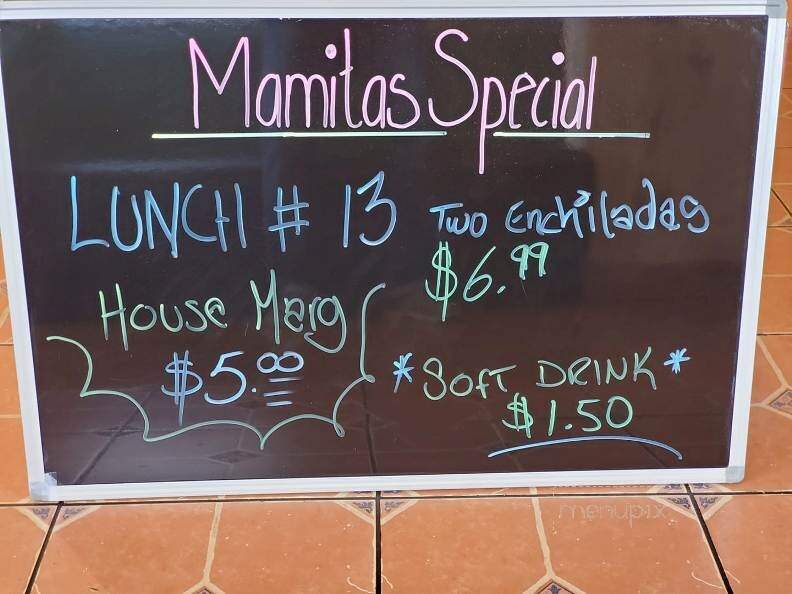 Mamitas Special
LUNCH # 13 Two Enchiladas
$6.99
House Marg
$5.00
*SOFT DRINK*
$1.50
menupix